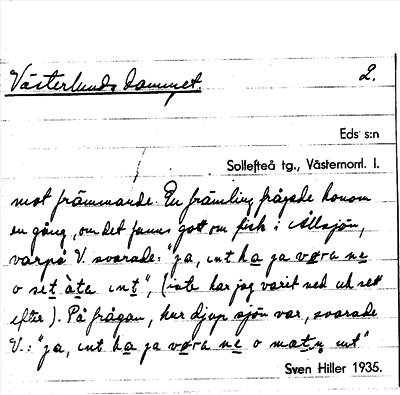 Västerlundskammet. 2.
Eds s:n
Sollefteå tg., Västernorrl. l.
mot främmande. En främling frågade honom
en gång, om det fanns gott om fisk i Ållsjön,
varpå V svarade: "ja, int ha ja vøra ne
o set àta int", (inte har jag varit ned och sett
efter). På frågan, hur djup sjön var, svarade
V.: "ja, int ha ja vøra ne o mat int"
Sven Hiller 1935.